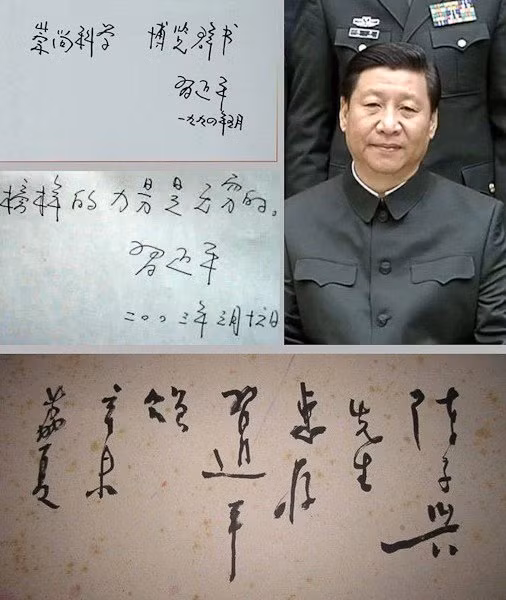 崇尚科学 博览群书
习近平
一九九〇年五月
榜样的力量是无穷的。
习近平
二〇〇三年三月十六日
陈子兴
先生
惠存
習近平
辛未
荔夏